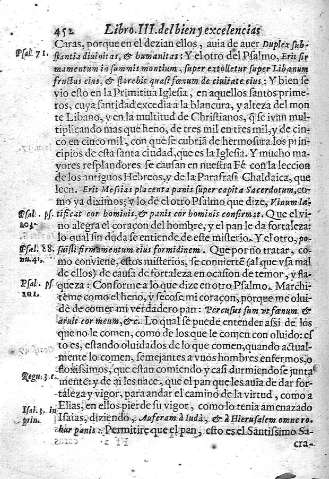 452 Libro.III.del bien y excelencias
Caras, porque en el dezian ellos, auia de auer Duplex sub-
Psal. 71. stantia diuinitas, & humanitas: Y el otro del Psalmo, Erit fir-
mamentum in summis montium, super extolletur super Libanum
fructus eius, & florebit quasi fœnum de ciuitate eius: Y bien se
vio esto en la Primitiua Iglesia, en aquellos santos prime-
ros, cuya santidad excedia a la blancura, y alteza del mon
te Libano, y en la multitud de Christianos, q̃ se ivan mul
tiplicando mas que heno, de tres mil en tres mil, y de cin-
co en cinco mil, con que se cubria de hermosura los princi
pios de esta santa ciudad, que es la Iglesia. Y mucho ma-
yores resplandores se causan en nuestra Fè con la leccion
de los antiguos Hebreos, y de la Parafrasi Chaldaica, que
leen. Erit Messias placenta panis super capita Sacerdotum, co-
mo ya diximos; y lo de el otro Psalmo que dize, Vinum læ-
Psal. 103. tificat cor hominis, & panis cor hominis confirmat. Que el vi-
no alegra el coraçon del hombre, y el pan le da fortaleza:
lo qual sin duda se entiende de este misterio. Y el otro, po-
Psal. 88. nu. 41. suisti firmamentum eius formidinem. Que por no tratar, co-
mo conviene, estos misterios, se convierte (al que vsa mal
de ellos) de causa de fortaleza en ocasion de temor, y fla-
Psal. 101. queza: Conforme a lo que dize en otro Psalmo. Marchi-
teme como el heno, y secose mi coraçon, porque me olui-
dè de comer mi verdadero pan: Percussus sum vt fœnum, &
aruit cor meum, &c. Lo qual se puede entender assi de los
que no le comen, como de los que le comen con oluido: es
to es, estando oluidados de lo que comen, quando actual-
mente lo comen, semejantes a vnos hombres enfermos, o
floxissimos, que estan comiendo y casi durmiendo se junta
Regu. 3. c. mente: y de ai les nace, que el pan que les auia de dar for-
taleza y vigor, para andar el camino de la virtud, como a
Elias, en ellos pierde su vigor, como lo tenia amenazado
Isai. 3. in prin. Isaias, diziendo, Auferam à Iuda, & à Hierusalem omne ro-
bur panis: Permitire que el pan, esto es el Santissimo Sa-
cra-